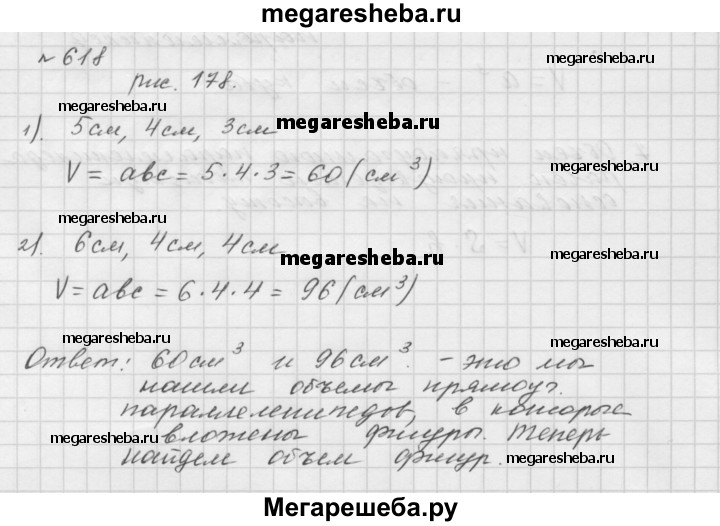 megaresheba.ru
№ 618
megaresheba.ru
рис. 178.
megaresheba.ru
1). 5см, 4см, 3см
megaresheba.ru
V = abc = 5·4·3 = 60 (см³)
megaresheba.ru
megaresheba.ru
2). 6см, 4см, 4см
megaresheba.ru
V = abc = 6·4·4 = 96 (см³)
megaresheba.ru
megaresheba.ru
Ответ: 60см³ и 96см³. - это мы
нашли объемы прямоуг.
параллелепипедов, в которые
megaresheba.ru
вложены фигуры. Теперь
найдем объем фигур.
megaresheba.ru
Мегарешеба.ру